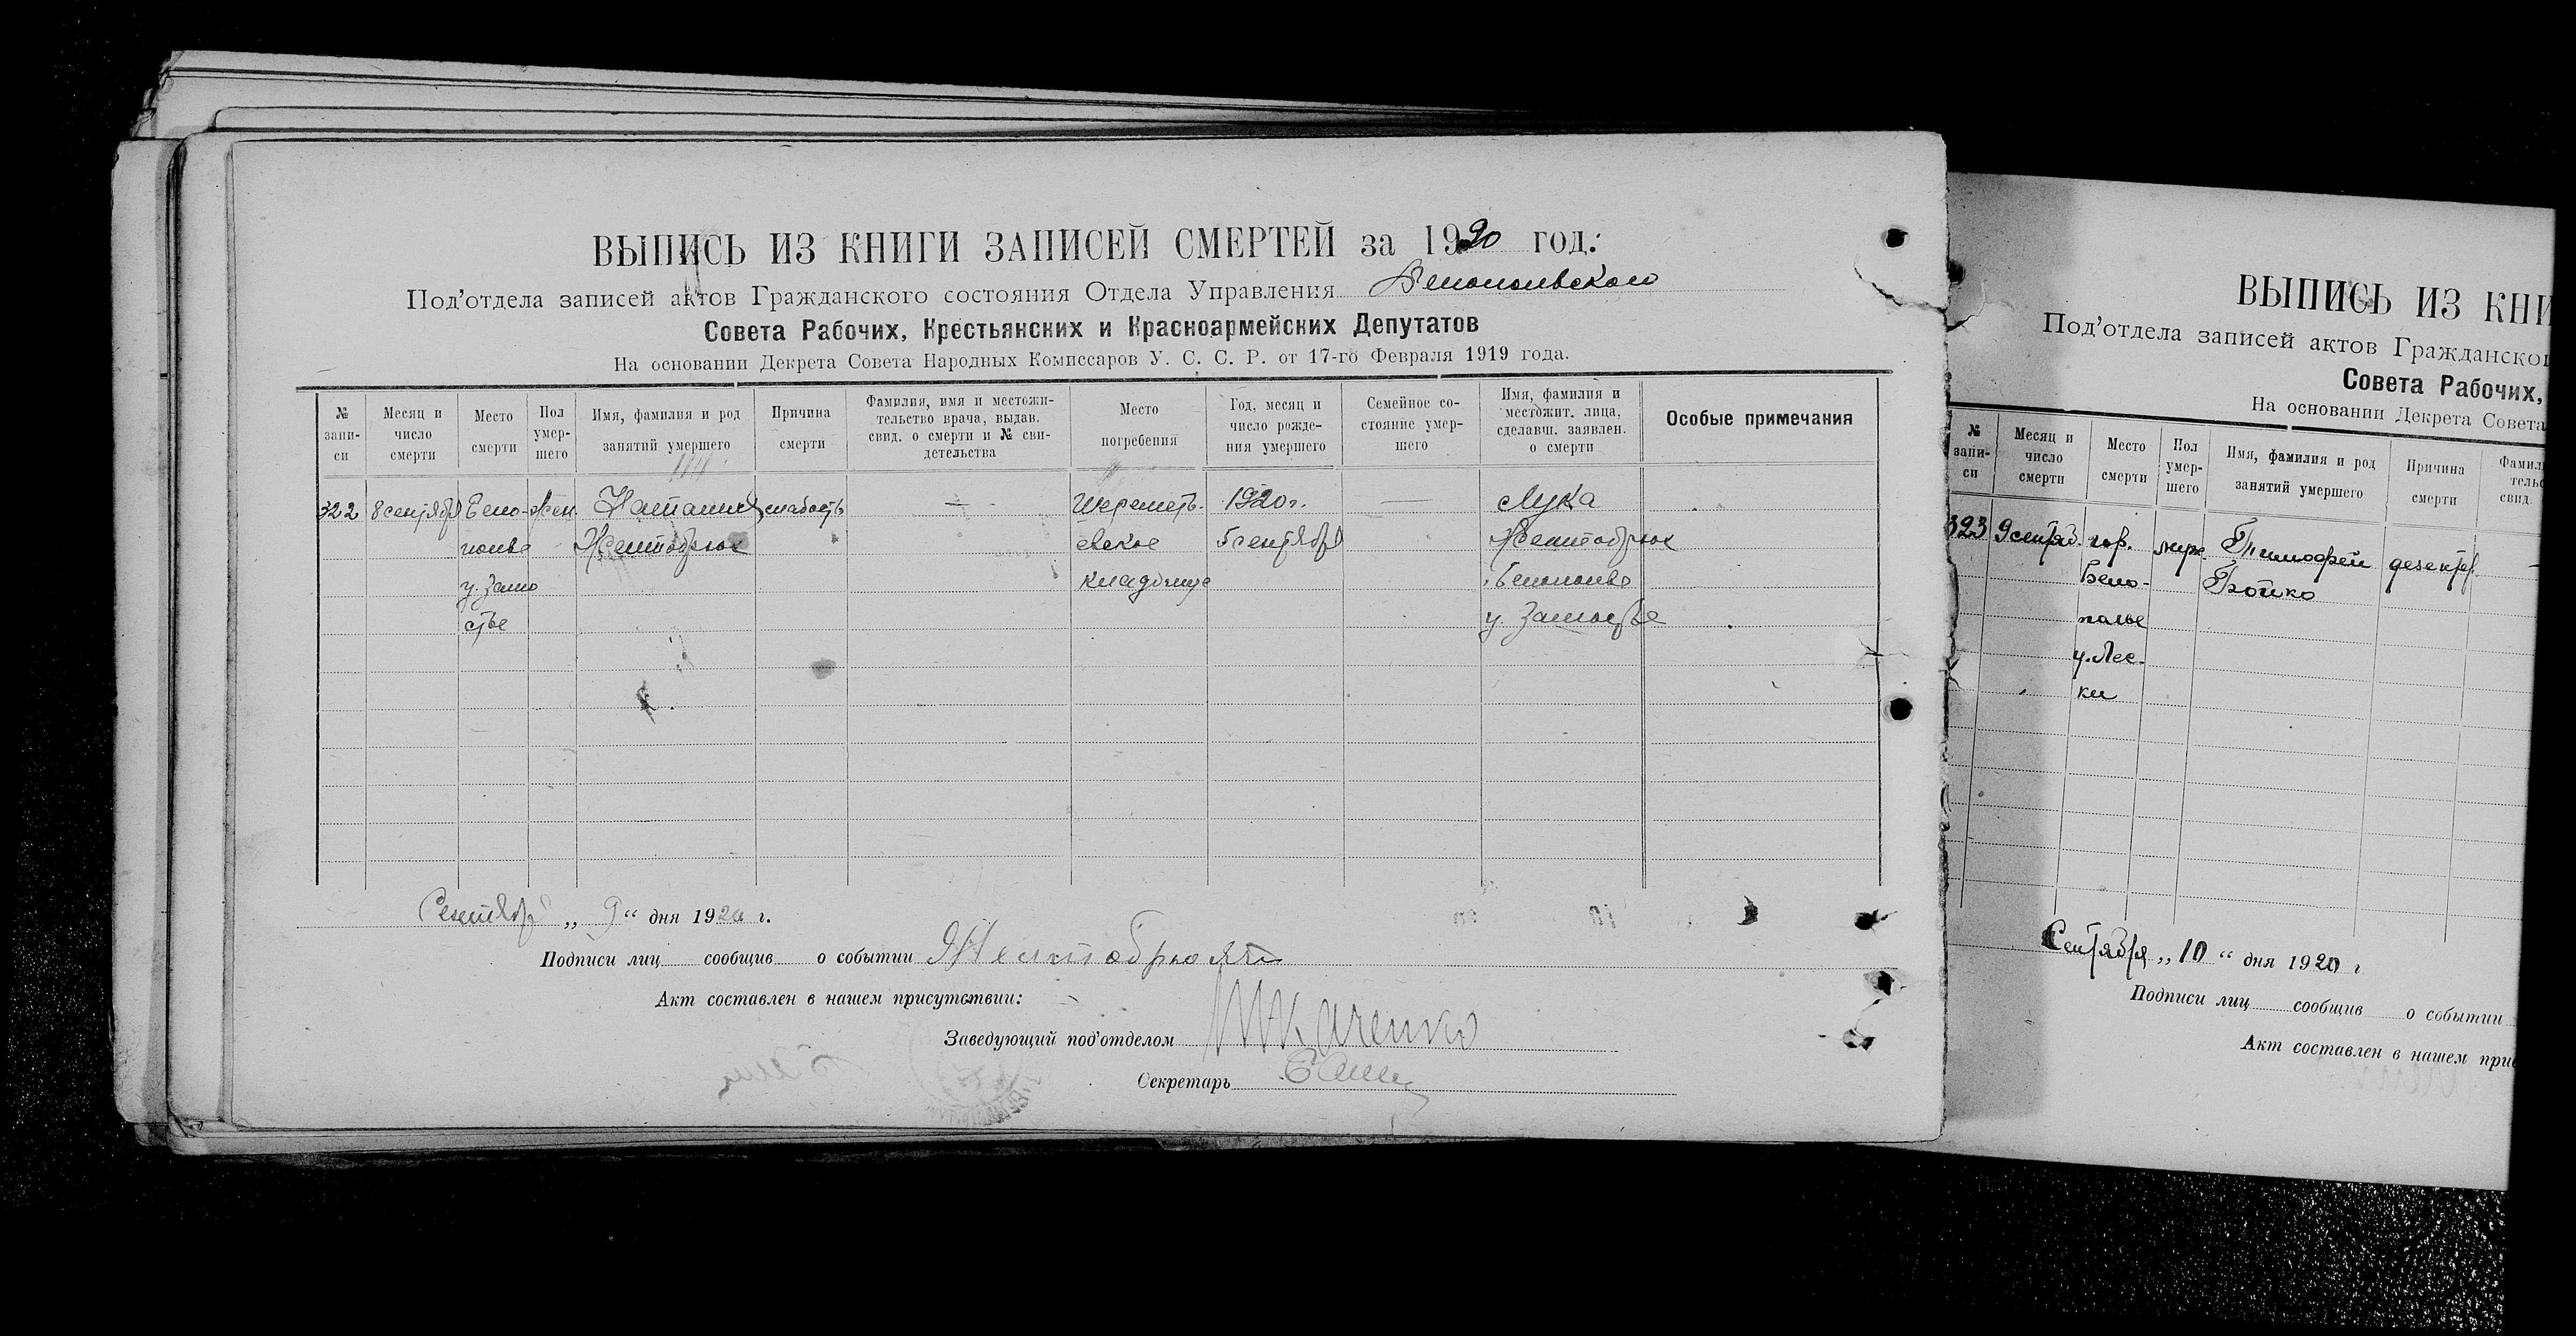 ВЫПИСЬ ИЗ КНИГИ ЗАПИСЕЙ СМЕРТЕЙ за 1920 год.
Под'отдела записей актов Гражданского состояния Отдела Управления
Совета Рабочих, Крестьянских и Красноармейских Депутатов
На основании Декрета Совета Народных Комиссаров У. С. С. Р. от 17-го Февраля 1919 года.
№ запи-
си
Месяц и
число
смерти
Место
смерти
Пол
умер-
шего
Имя, фамилия и род
занятий умершего
Причина
смерти
Фамилия, имя и местожи-
тельство врача, выдав.
свид. о смерти и № сви-
детельства
Место
погребения
Год, месяц и
число рожде-
ния умершего
Семейное со-
стояние умер-
шего
Имя, фамилия и
местожит. лица,
сделавш. заявлен.
о смерти
Особые примечания
322 8 сентября Бело- жен. Наталия слабость — Шереметь- 1920 г. — Лука
полье Желтобрюх евское 5 сентября Желтобрюх
у. Замо кладбище Белополье
стье у. Замостье
Сентября „ 9 “ дня 1920 г.
Подписи лиц сообщив о событии
Акт составлен в нашем присутствии:
Заведующий под'отделом Ткаченко
Секретарь
ВЫПИСЬ ИЗ КНИ
Под'отдела записей актов Гражданског
Совета Рабочих,
На основании Декрета Совета
№
запи-
си
Месяц и
число
смерти
Место
смерти
Пол
умер-
шего
Имя, фамилия и род
занятий умершего
Причина
смерти
Фамил
тельс
свид.
323 9 сентяб. гор. муж. Тимофей дезентер. —
Бело- Бойко
полье
у. Лес-
ки
Сентября „ 10 “ дня 1920 г
Подписи лиц сообщив о событии
Акт составлен в нашем при